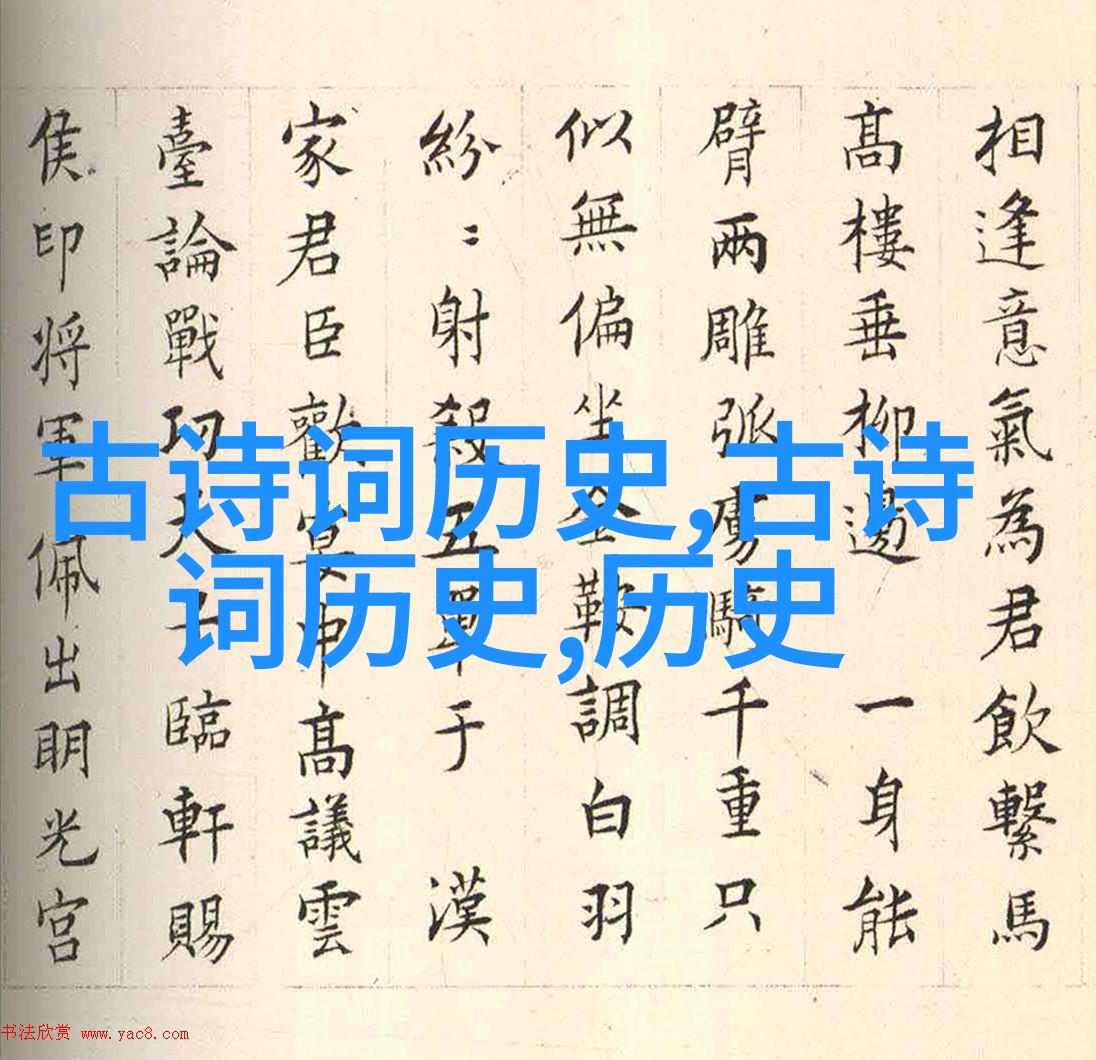 相逢意氣為君飲繫馬
髙樓垂柳邊 一身能
臂兩雕弧虜騎千重只
似無偏坐金鞍調白羽
紛〻射殺五單于 漢
家君臣歡宴髙議雲
臺論戰功天子臨軒賜
侯印将軍佩出明光宮
古诗词历史,古诗
词历史,历史
书法欣赏 www.yac8.com